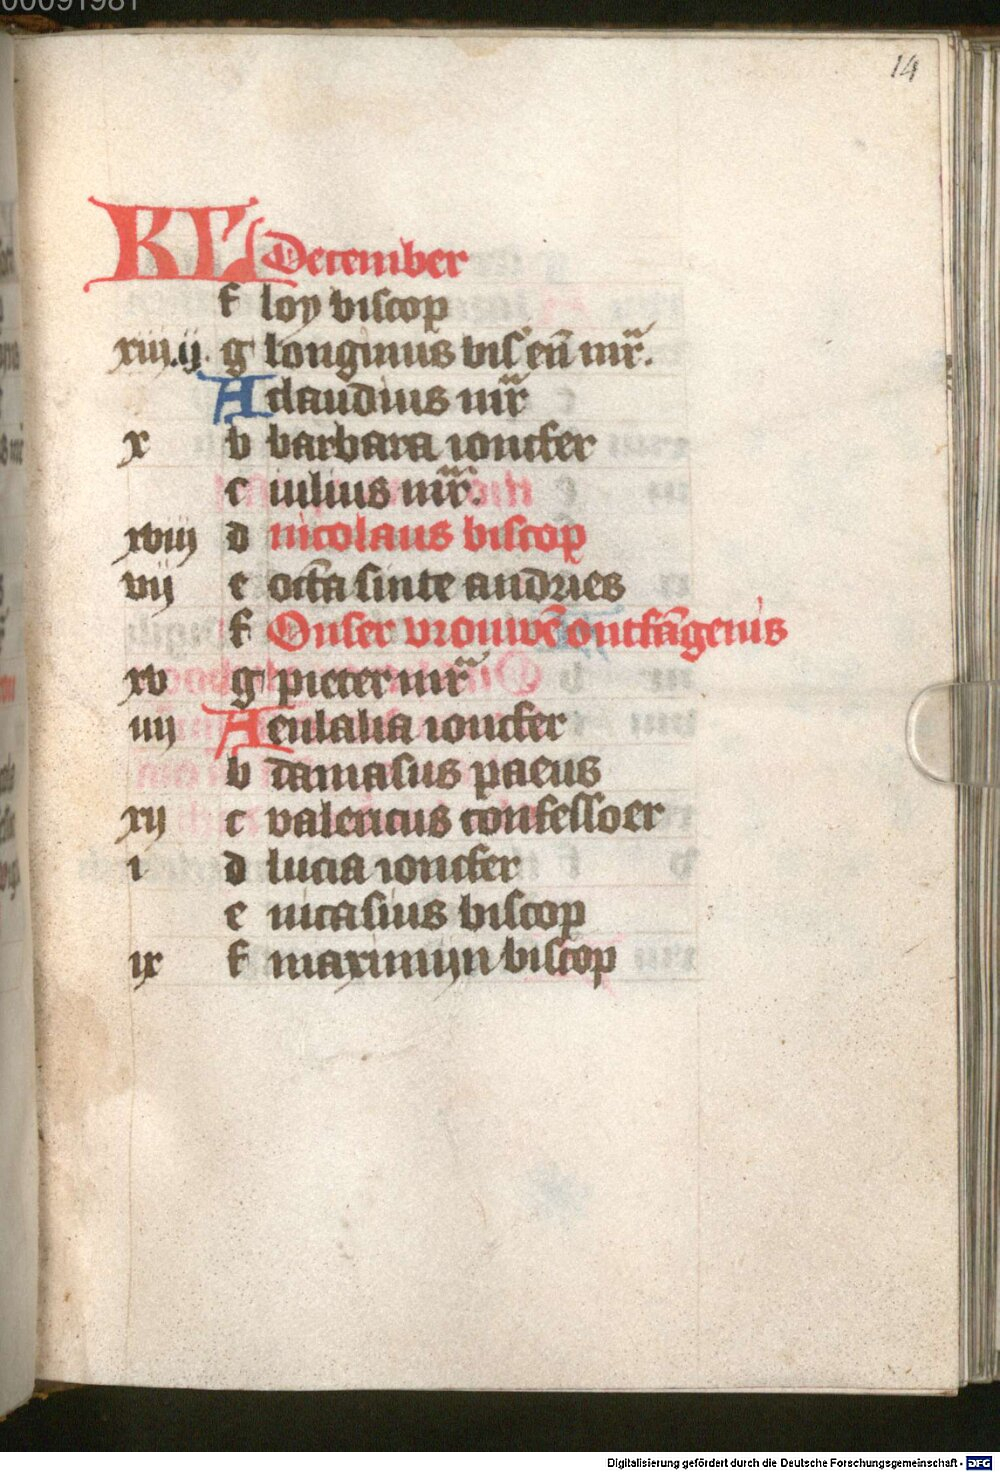 00091981
14
KL December
f loy biscop
xiii.ij. g longinus bis en̄ mr̄.
A claudius mr̄
x b barbara ioncfer
c iulius mr̄.
xviij d nicolaus biscop
vij e oct̄a sinte andries
f Onser vrouwē ontfāgenis
xv g pieter mr̄
iiij A eulalia ioncfer
b damasus paeus
xij c valericus confessoer
i d lucia ioncfer
e nicasius biscop
ix f maximijn biscop
Digitalisierung gefördert durch die Deutsche Forschungsgemeinschaft - DFG